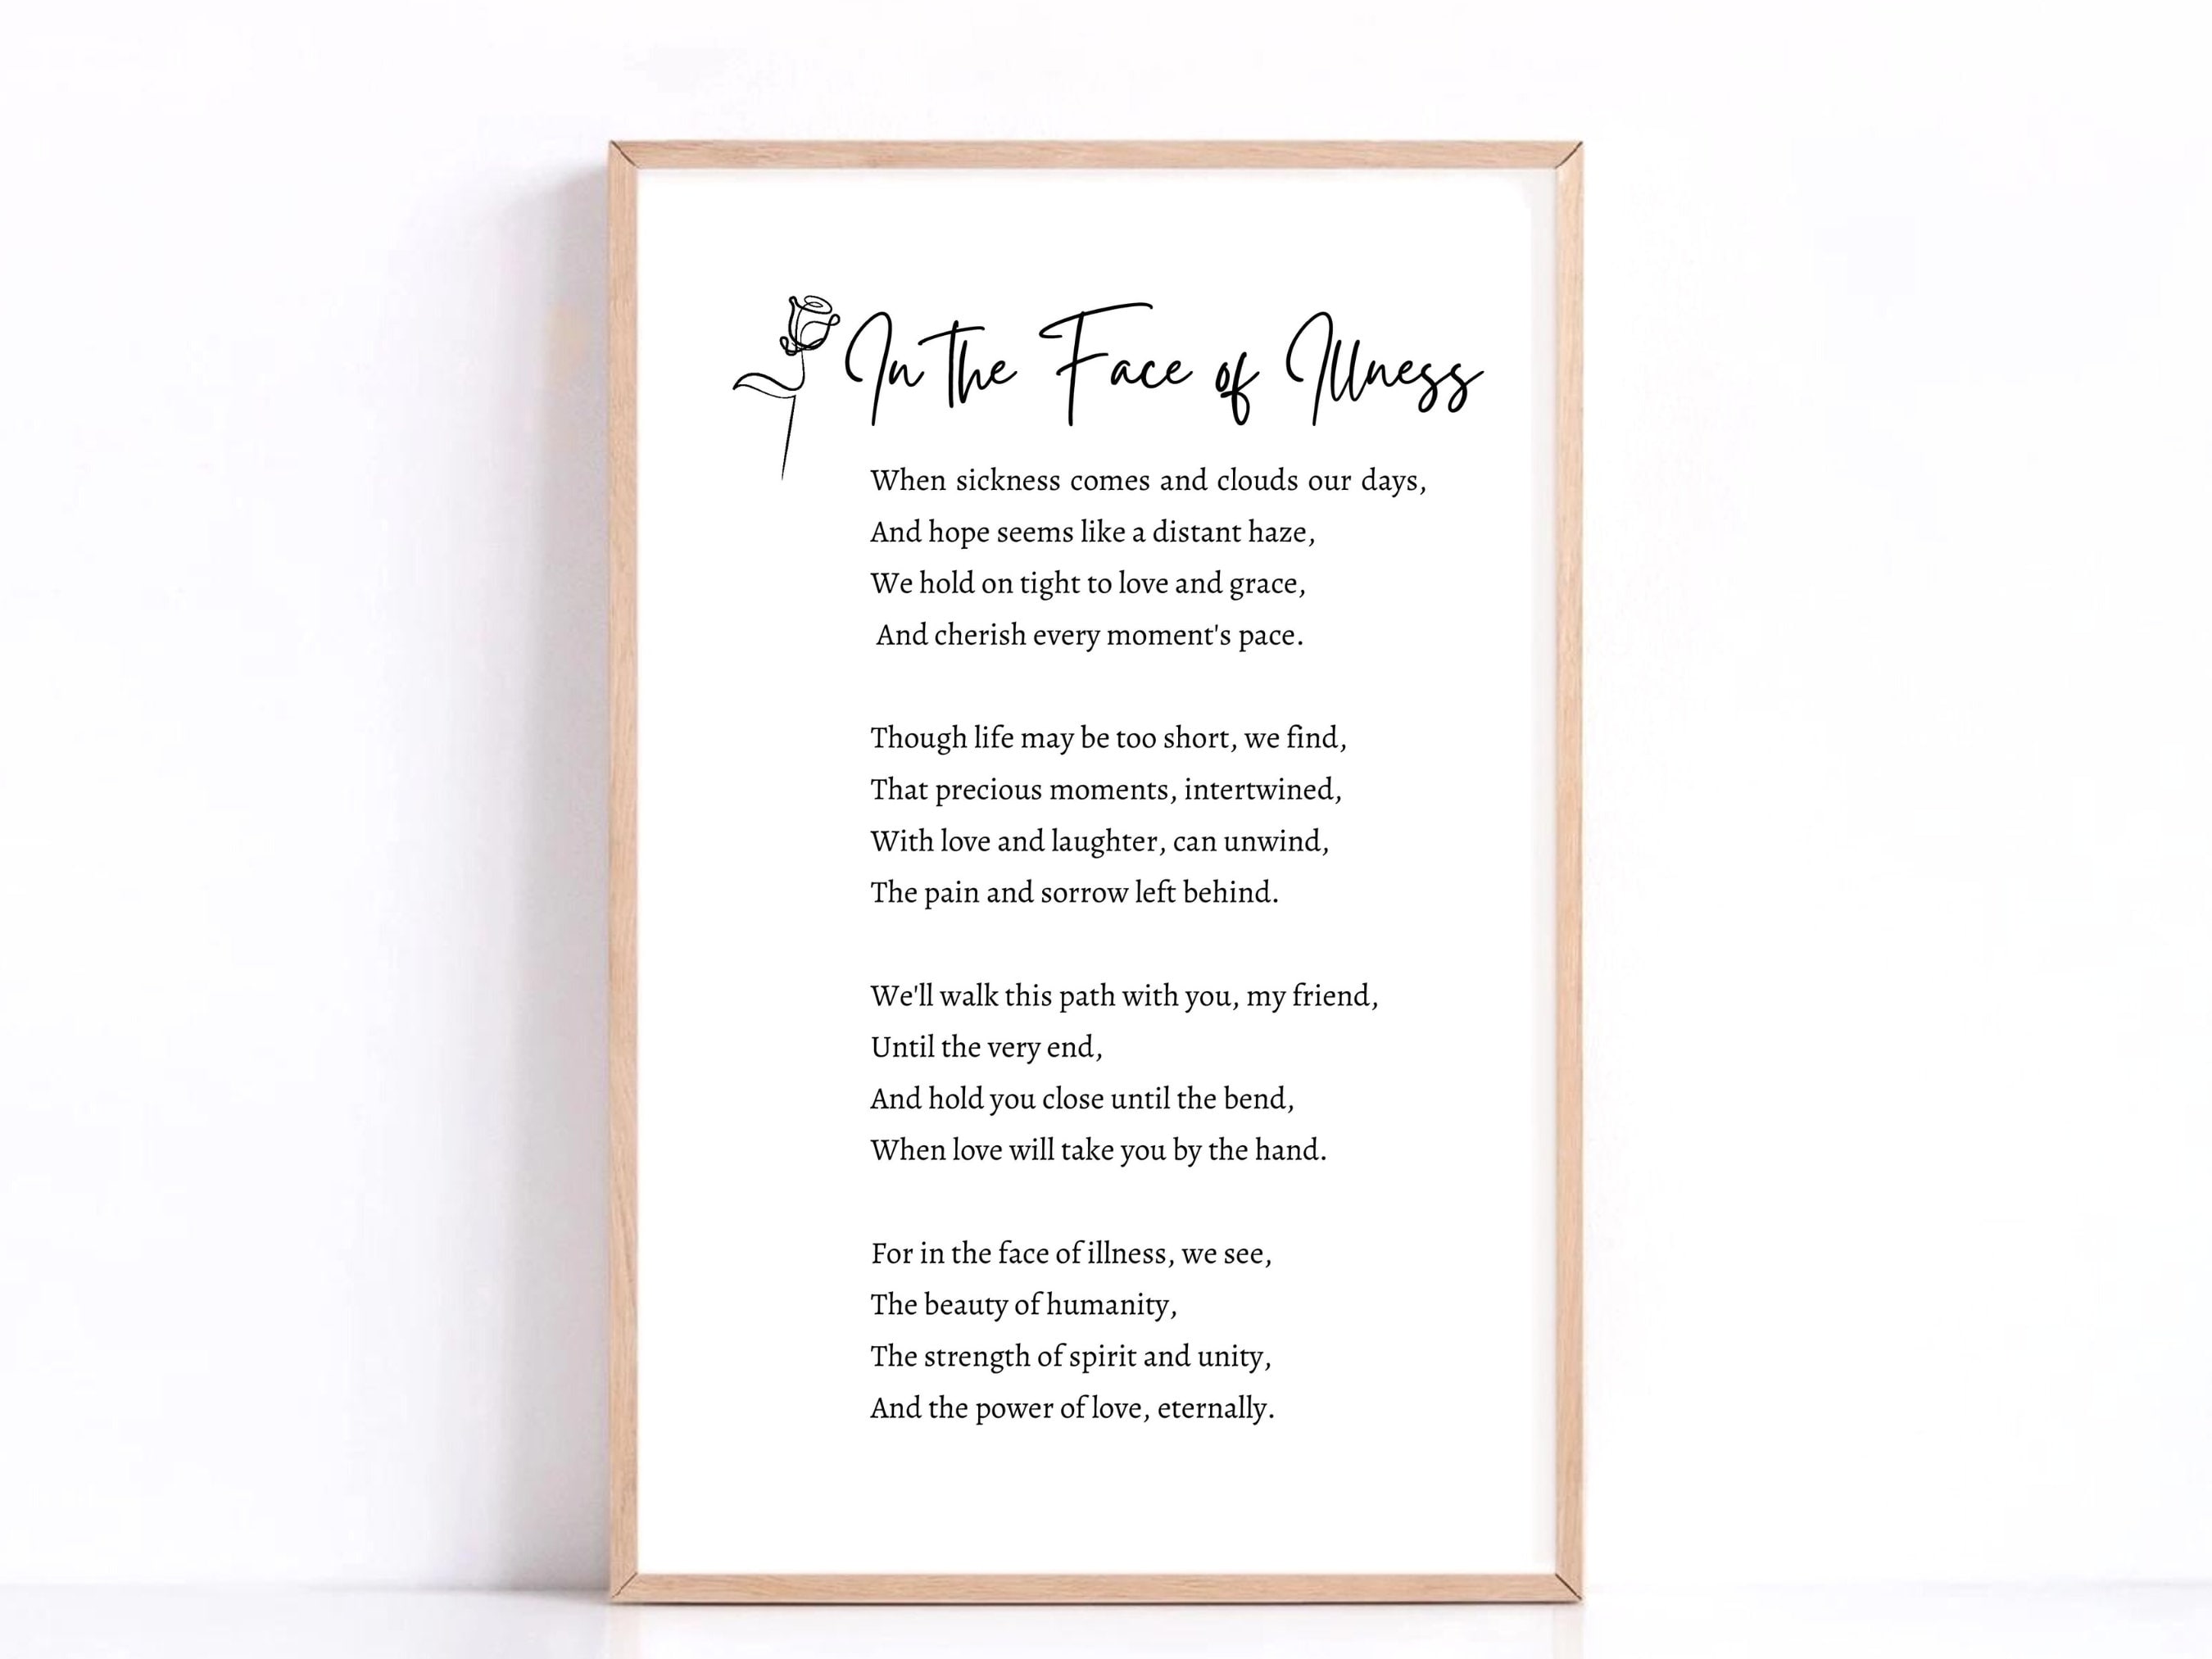 In The Face of Illness
When sickness comes and clouds our days,
And hope seems like a distant haze,
We hold on tight to love and grace,
And cherish every moment's pace.
Though life may be too short, we find,
That precious moments, intertwined,
With love and laughter, can unwind,
The pain and sorrow left behind.
We'll walk this path with you, my friend,
Until the very end,
And hold you close until the bend,
When love will take you by the hand.
For in the face of illness, we see,
The beauty of humanity,
The strength of spirit and unity,
And the power of love, eternally.